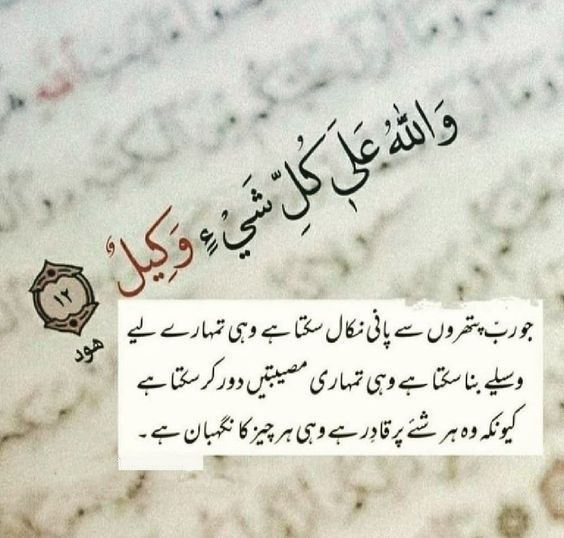 وَاللّٰهُ عَلٰى كُلِّ شَيْءٍ وَكِيلٌ
١٢
هود
جو ربّ پتھروں سے پانی نکال سکتا ہے وہی تمہارے لیے
وسیلے بنا سکتا ہے وہی تمہاری مصیبتیں دور کر سکتا ہے
کیونکہ وہ ہر شئے پر قادِر ہے وہی ہر چیز کا نگہبان ہے۔